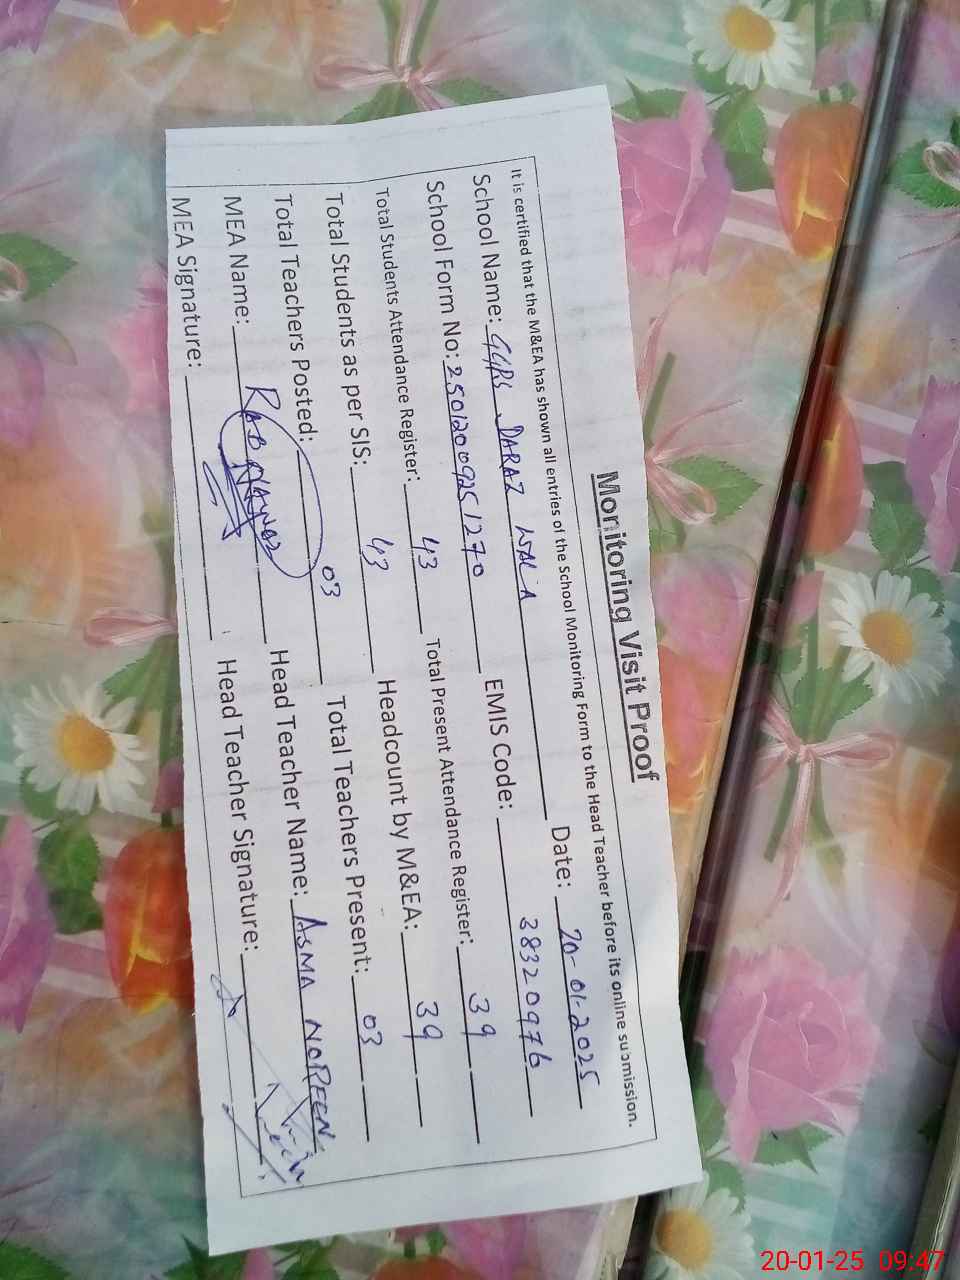 Monitoring Visit Proof
It is certified that the M&EA has shown all entries of the School Monitoring Form to the Head Teacher before its online submission.
School Name: GGPS DARAZ WALA Date: 20-01-2025
School Form No: 25012009251270 EMIS Code: 38320976
Total Students Attendance Register: 43 Total Present Attendance Register: 39
Total Students as per SIS: 43 Headcount by M&EA: 39
Total Teachers Posted: 03 Total Teachers Present: 03
MEA Name: RAB NAWAZ Head Teacher Name: ASMA NOREEN
MEA Signature: Head Teacher Signature:
20-01-25 09:47